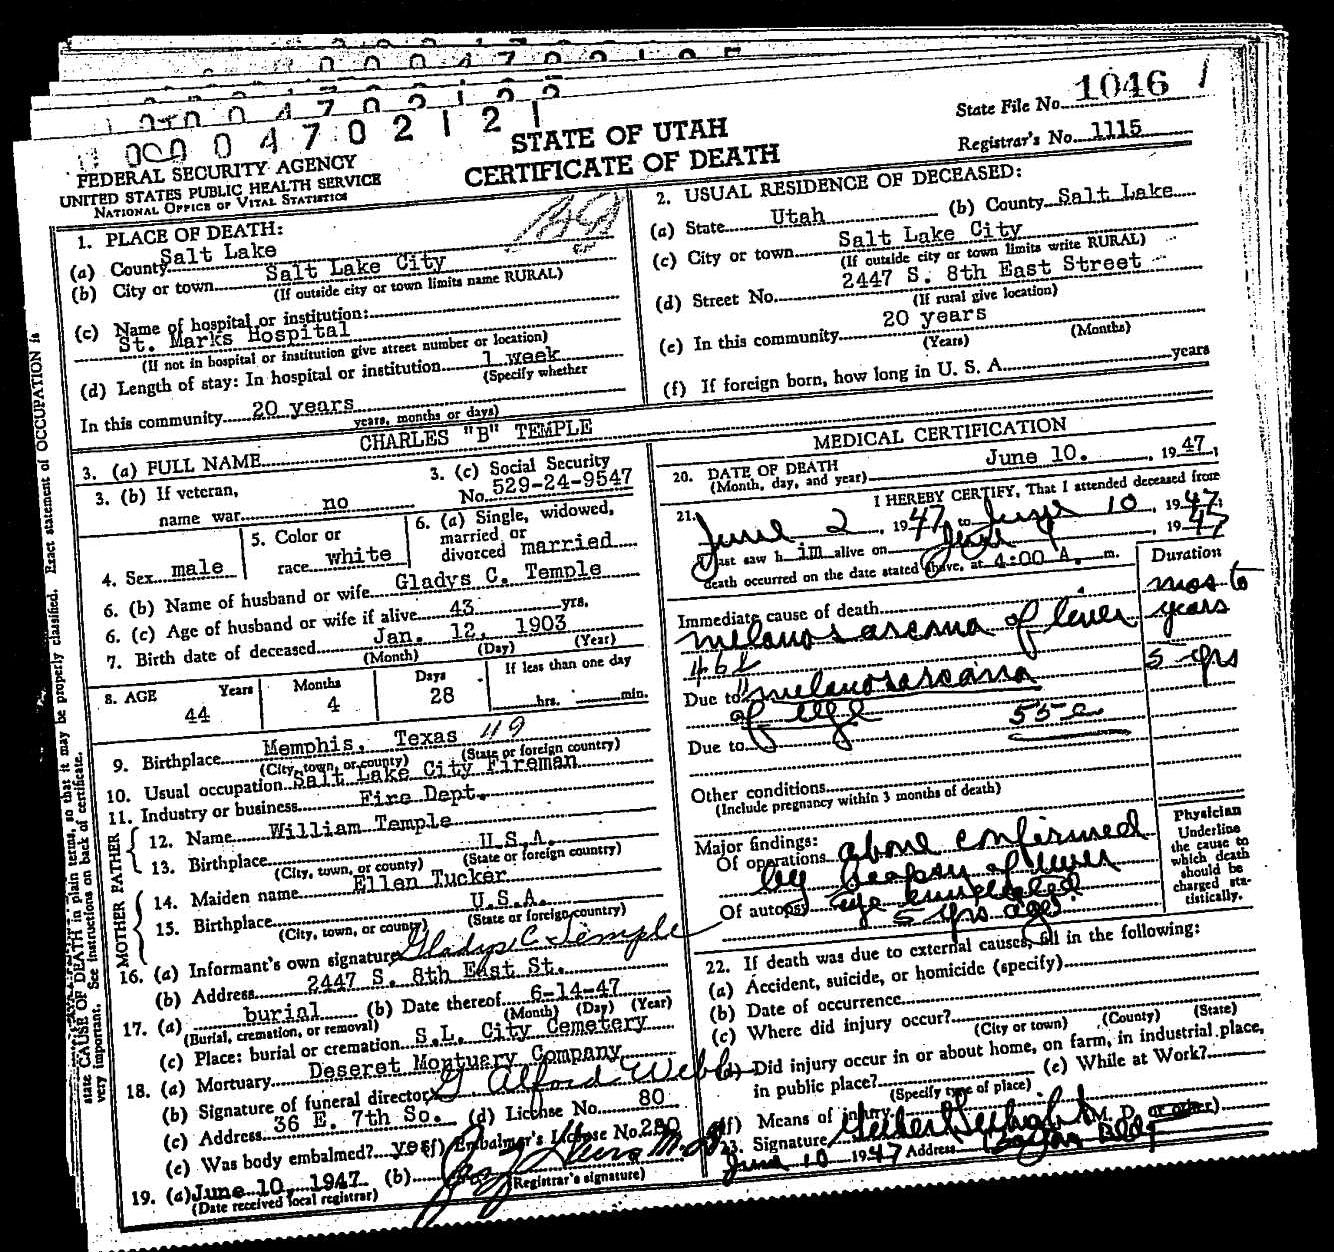 0004702121
State File No. 1046
Registrar's No. 1115
FEDERAL SECURITY AGENCY
UNITED STATES PUBLIC HEALTH SERVICE
NATIONAL OFFICE OF VITAL STATISTICS
STATE OF UTAH
CERTIFICATE OF DEATH
1. PLACE OF DEATH:
(a) County Salt Lake
(b) City or town Salt Lake City
(If outside city or town limits name RURAL)
(c) Name of hospital or institution:
St. Marks Hospital
(If not in hospital or institution give street number or location)
(d) Length of stay: In hospital or institution 1 week
(Specify whether
In this community 20 years
years, months or days)
2. USUAL RESIDENCE OF DECEASED:
(a) State Utah (b) County Salt Lake
(c) City or town Salt Lake City
(If outside city or town limits write RURAL)
(d) Street No. 2447 S. 8th East Street
(If rural give location)
(e) In this community 20 years
(Years) (Months)
(f) If foreign born, how long in U. S. A. years
3. (a) FULL NAME CHARLES "B" TEMPLE
3. (b) If veteran,
name war no
3. (c) Social Security
No. 529-24-9547
4. Sex male
5. Color or
race white
6. (a) Single, widowed,
married, or
divorced married
6. (b) Name of husband or wife Gladys C. Temple
6. (c) Age of husband or wife if alive 43 yrs.
7. Birth date of deceased Jan. 12, 1903
(Month) (Day) (Year)
8. AGE Years Months Days If less than one day
44 4 28 hrs. min.
9. Birthplace Memphis, Texas 119
(City, town, or county) (State or foreign country)
10. Usual occupation Salt Lake City Fireman
11. Industry or business Fire Dept.
FATHER
12. Name William Temple
13. Birthplace U.S.A.
(City, town, or county) (State or foreign country)
MOTHER
14. Maiden name Ellen Tucker
15. Birthplace U.S.A.
(City, town, or county) (State or foreign country)
16. (a) Informant's own signature Gladys C Temple
(b) Address 2447 S. 8th East St.
17. (a) burial (b) Date thereof 6-14-47
(Burial, cremation, or removal) (Month) (Day) (Year)
(c) Place: burial or cremation S.L. City Cemetery
18. (a) Mortuary Deseret Montuary Company
(b) Signature of funeral director G Alford Webb
(c) Address 36 E. 7th So. (d) License No. 80
(e) Was body embalmed? yes (f) Embalmer's License No. 280
19. (a) June 10, 1947 (b)
(Date received local registrar) (Registrar's signature)
MEDICAL CERTIFICATION
20. DATE OF DEATH June 10, 1947
(Month, day, and year)
21. I HEREBY CERTIFY, That I attended deceased from
June 2, 1947 to June 10, 1947;
I last saw h im alive on June 9, 1947
death occurred on the date stated above, at 4:00 A. m.
Duration
Immediate cause of death mos to
melanosarcoma of liver years
Due to melanosarcoma 5 yrs
of eye 55e
Due to
Other conditions
(Include pregnancy within 3 months of death)
Major findings:
Of operations above confirmed
by biopsy of liver
Of autopsy eye enucleated
5 yrs ago.
Physician
Underline
the cause to
which death
should be
charged sta-
tistically.
22. If death was due to external causes, fill in the following:
(a) Accident, suicide, or homicide (specify)
(b) Date of occurrence
(c) Where did injury occur?
(City or town) (County) (State)
(d) Did injury occur in or about home, on farm, in industrial place,
in public place? (e) While at Work?
(Specify type of place)
(f) Means of injury
23. Signature M. D. or other)
June 10 1947 Address Bldg
state CAUSE OF DEATH in plain terms, so that it may be properly classified. Exact statement of OCCUPATION is
very important. See instructions on back of certificate.